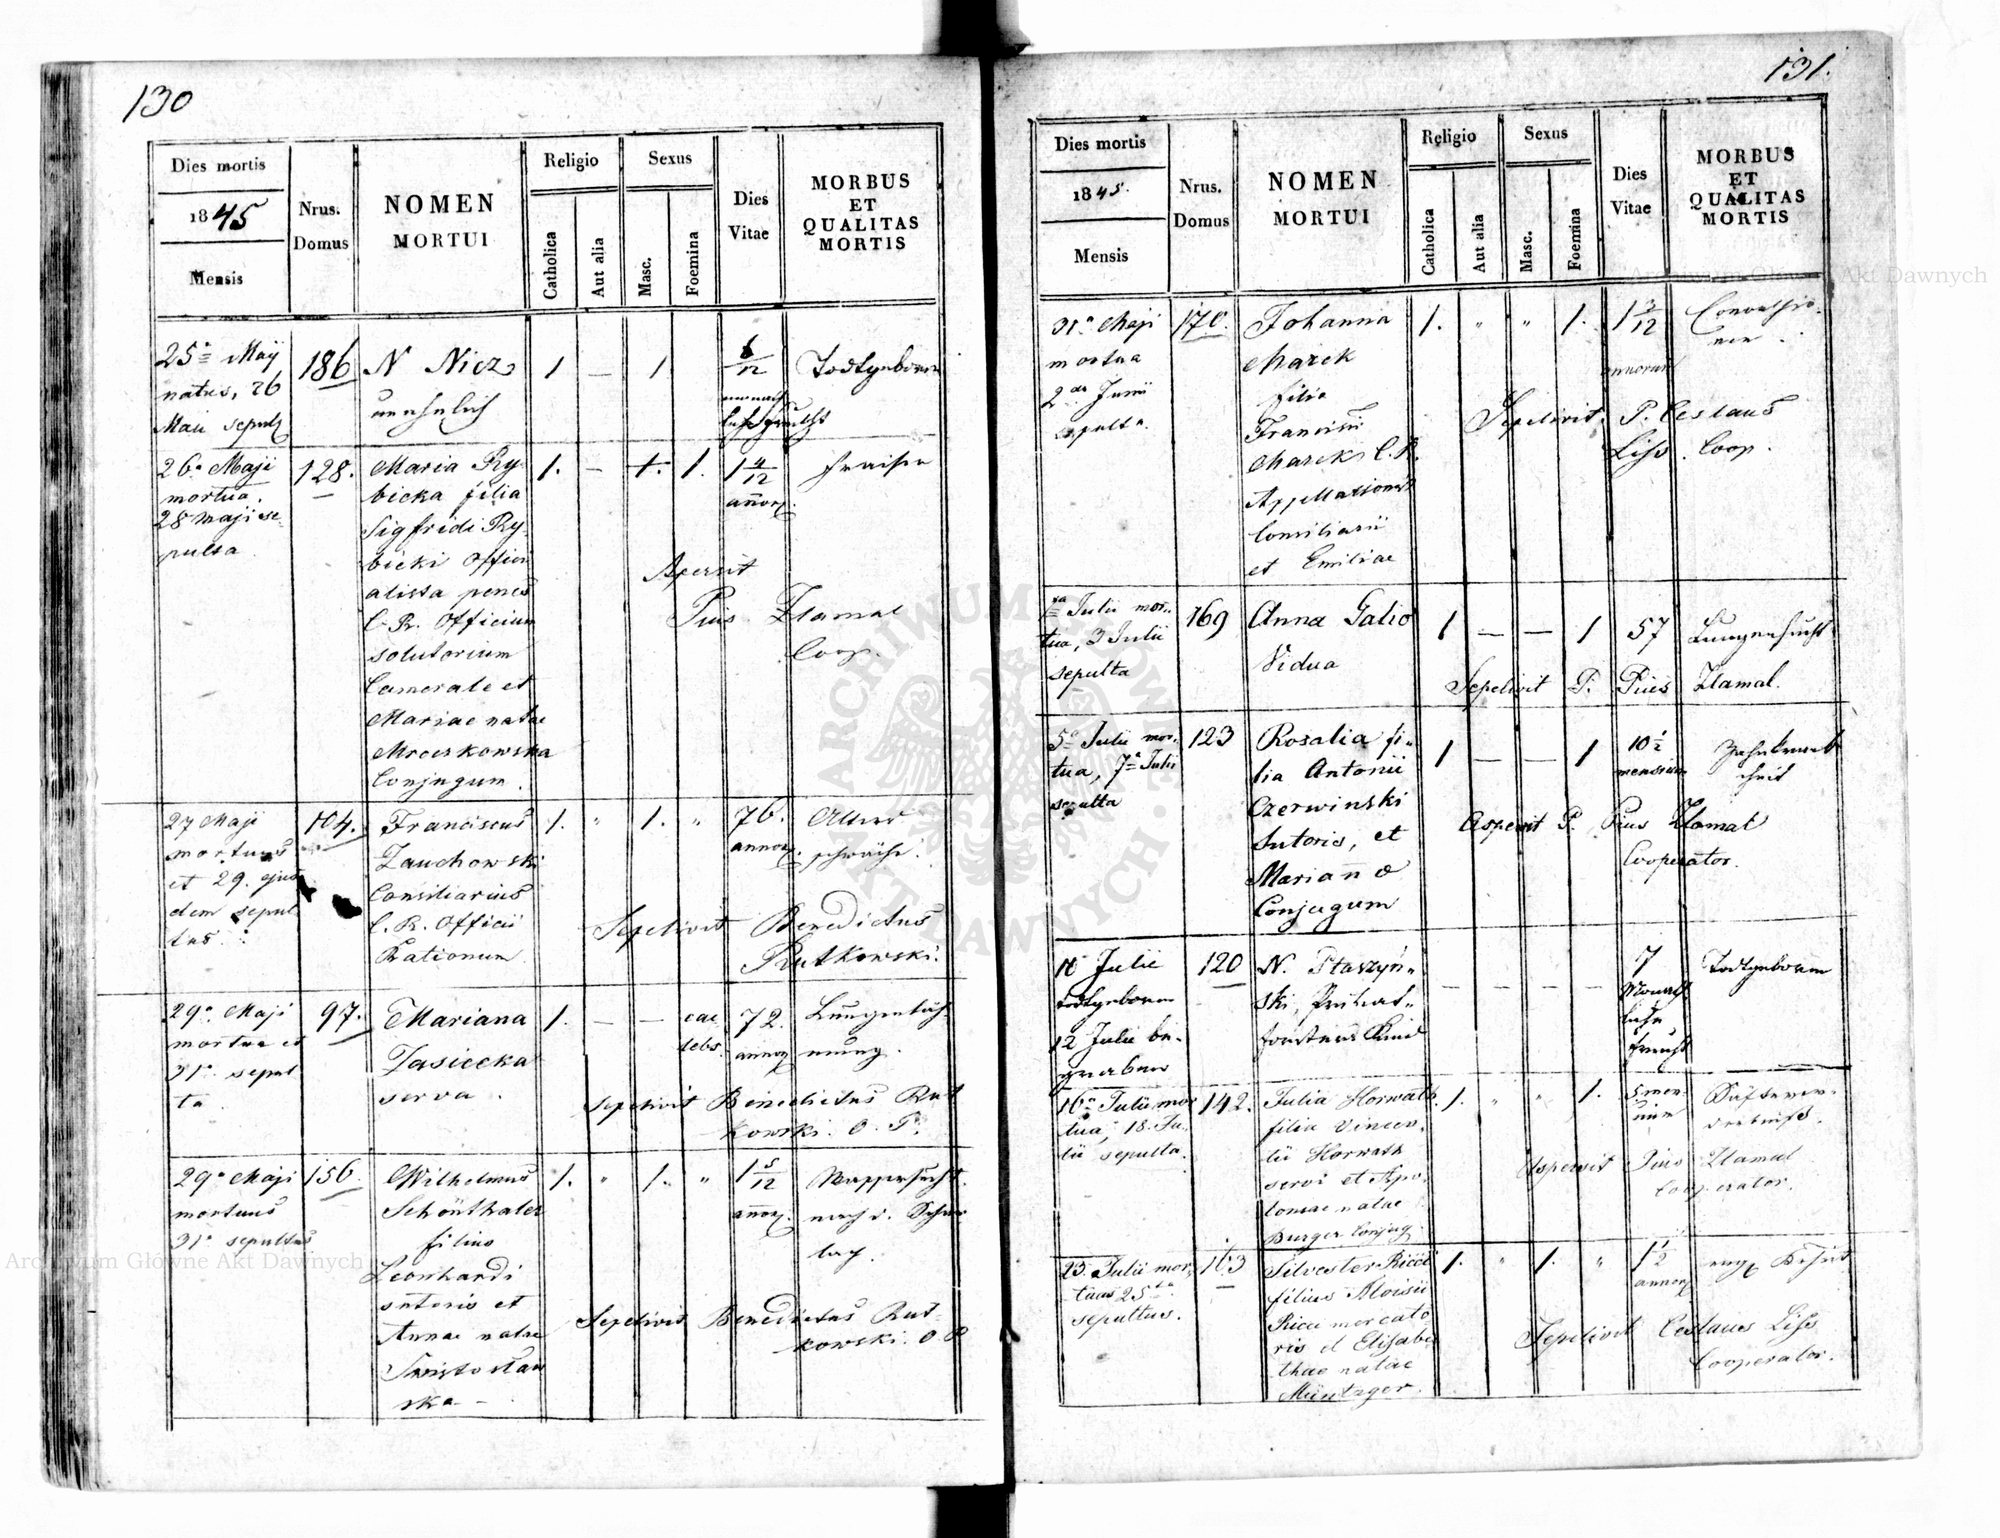 130
Dies mortis
1845
Mensis
Nrus.
Domus
NOMEN
MORTUI
Religio
Catholica
Aut alia
Sexus
Masc.
Foemina
Dies
Vitae
MORBUS
ET
QUALITAS
MORTIS
25a Maji
natus, 26
Maii sepult
186
N Nicz
unehelich
1
—
1
6/12
Todtgeboren
26a Maji
mortua.
28 Maji se-
pulta
128.
Maria Ry-
bicka filia
Sigfridi Ry-
bicki offici
alista penes
C. R. Officium
solutorium
Camerale et
Mariae natae
Mroczkowska
Conjugum.
1.
—
1.
1 4/12
annor.
Fraisen
Aspersit
Pius Zlamal
Coop.
27 Maji
mortuus
et 29. ejus
dem sepul
tus.
104.
Franciscus
Zauchowski
Consiliarius
C. R. Officii
Rationum.
1.
"
1.
"
76.
annor.
Alters
schwäche.
Sepelivit Benedictus
Rutkowski.
29a Maji
mortua et
31a sepul
ta
97.
Mariana
Jasicka
serva.
1.
—
—
cae
lebs.
72.
annor
Lungenläh-
mung.
Sepelivit Benedictus Rut
kowski. O. P.
29a Maji
mortuus
31a sepultus
156
Wilhelmus
Schönthaler
filius
Leonhardi
sutoris et
Annae natae
ska –
1.
"
1.
"
1 5/12
annor.
Wassersucht
nach d. Schar
lach.
Sepelivit Benedictus Rut-
kowski. O P
131.
Dies mortis
1845.
Mensis
Nrus.
Domus
NOMEN
MORTUI
Religio
Catholica
Aut alia
Sexus
Masc.
Foemina
Dies
Vitae
MORBUS
ET
QUALITAS
MORTIS
31a Maji
mortua
2da Junii
sepulta.
170.
Johanna
Marek
filia
Francisci
Marek C. R.
Appellationis
Consiliarii
et Emiliae
1.
"
"
1.
1 3/12
annorum
Convulsio-
nen.
Sepelivit P. Ceslaus
Liss. Coop.
1a Julii mor-
tua, 3 Julii
sepulta
169
Anna Galio
Vidua
1
—
—
1
57
Lungensucht
Sepelivit P. Pius Zlamal.
5a Julii mor-
tua, 7a Julii
sepulta
123
Rosalia fi-
lia Antonii
Czerwinski
Sutoris, et
Mariannae
Conjugum
1
—
—
1
10 1/2
mensium
Aspersit P. Pius Zlamal
Cooperator.
10 Julii
todtgeboren
12 Julii be-
graben
120
N. Ptaszyń-
ski, Privat-
försters Kind
—
—
—
—
7
Monat
liche
Frucht
Todtgeboren
16a Julii mor
tua, 18. Ju-
lii sepulta.
142.
Julia Horwath
filia Vincen-
tii Horwath
servi et Apo
loniae natae
Burger Conjug.
1.
"
"
1.
5 men-
sium
Säftever-
derbniss.
Aspersit Pius Zlamal
Cooperator.
23. Julii mor
tuus 25ta
sepultus.
163
Silvester Ricci
filius Aloisii
Ricci mercato
ris et Elisabe
thae natae
Müntzger.
1.
"
1.
"
1 1/2
annor
Sepelivit Ceslaus Liss
Cooperator.
ARCHIWUM GŁÓWNE AKT DAWNYCH
Archiwum Główne Akt Dawnych
Archiwum Główne Akt Dawnych